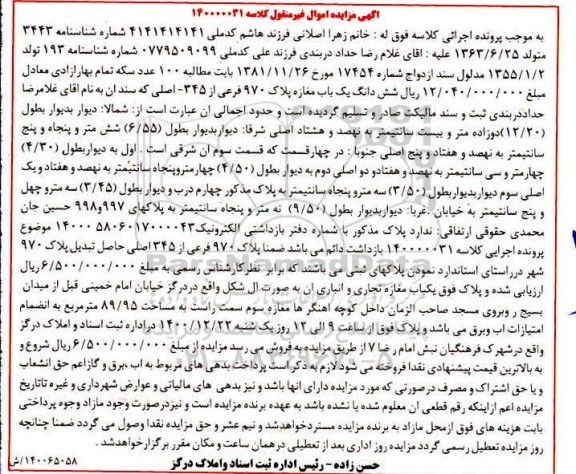 آگهی مزایده اموال غیرمنقول کلاسه ۱۴۰۰۰۰۰۳۱
به موجب پرونده اجرائی کلاسه فوق له : خانم زهرا اصلانی فرزند هاشم کدملی ۴۱۴۱۴۱۴۱۴۱ شماره شناسنامه ۳۴۴۳
متولد ۱۳۶۳/۶/۲۵ علیه : اقای غلام رضا حداد دربندی فرزند علی کدملی ۰۷۷۹۵۰۹۰۹۹ شماره شناسنامه ۱۹۳ تولد
۱۳۵۵/۱/۲ مدلول سند ازدواج شماره ۱۷۴۵۴ مورخ ۱۳۸۱/۱۱/۲۶ بابت مطالبه ۱۰۰ عدد سکه تمام بهارازادی معادل
مبلغ ۱۲/۰۴۰/۰۰۰/۰۰۰ ریال شش دانگ یک باب مغازه پلاک ۹۷۰ فرعی از ۳۴۵- اصلی که سند ان به نام اقای غلامرضا
حداددربندی ثبت و سند مالکیت صادر و تسلیم گردیده است و حدود اجمالی ان عبارت است از: شمالا: دیوار بدیوار بطول
(۱۲/۲۰)دوازده متر و بیست سانتیمتر به نهصد و هشتاد اصلی شرقا: دیواربدیوار بطول (۶/۵۵) شش متر و پنجاه و پنج
سانتیمتر به نهصد و هفتاد و پنج اصلی جنوبا : در چهارقسمت که قسمت سوم ان شرقی است . اول به دیواربطول (۴/۳۰)
چهارمتر و سی سانتیمتر به نهصد و هفتادو دو اصلی دوم به دیوار بطول (۴/۵۰) چهارمتروپنجاه سانتیمتر به نهصد و هفتاد و یک
اصلی سوم دیواربدیواربطول (۳/۵۰) سه مترو پنجاه سانتیمتر به پلاک مذکور چهارم درب و دیوار بطول (۳/۴۵) سه مترو چهل
و پنج سانتیمتر به خیابان .غربا: دیواربدیوار بطول (۹/۵۰) نه متر و پنجاه سانتیمتر به پلاکهای ۹۹۷و۹۹۸ حسین جان
محمدی حقوقی ارتفاقی: ندارد پلاک مذکور با شماره دفتر بازداشتی الکترونیک۱۴۰۰۰۵۸۰۶۰۱۷۰۰۰۰۴۳ موضوع
پرونده اجرایی کلاسه ۱۴۰۰۰۰۰۳۱ بازداشت دائم می باشد ضمنا پلاک ۹۷۰ فرعی از ۳۴۵ اصلی حاصل تبدیل پلاک ۹۷۰
شهر درراستای استاندارد نمودن پلاکهای ثبتی می باشند که برابر نظرکارشناس رسمی به مبلغ ۶/۵۰۰/۰۰۰/۰۰۰ ریال
ارزیابی شده و پلاک فوق یکباب مغازه تجاری و انباری ان به صورت ال شکل واقع دردرگز خیابان امام خمینی قبل از میدان
بسیج ر وبروی مسجد صاحب الزمان داخل کوچه اهنگر ها مغازه سوم سمت راست به مساحت ۸۹/۹۵ مترمربع به انضمام
امتیازات اب وبرق می باشد و پلاک فوق از ساعت ۹ الی ۱۲ روز یک شنبه ۱۴۰۰/۱۲/۲۲ دراداره ثبت اسناد و املاک درگز
واقع درشهرک فرهنگیان نبش امام رضا ۷ از طریق مزایده به فروش می رسد مزایده از مبلغ ۶/۵۰۰/۰۰۰/۰۰۰ ریال شروع و
به بالاترین قیمت پیشنهادی نقدا فروخته می شود لازم به ذکر است پرداخت بدهی های مربوط به اب ،برق و گازاعم حق انشعاب
و یا حق اشتراک و مصرف درصورتی که مورد مزایده دارای انها باشد و نیز بدهی های مالیاتی و عوارض شهرداری و غیره تاتاریخ
مزایده اعم ازاینکه رقم قطعی ان معلوم شده یا نشده باشد به عهده برنده مزایده است و نیزدرصورت وجود مازاد وجوه پرداختی
بابت هزینه های فوق ازمحل مازاد به برنده مزایده مسترد خواهدشد و نیم عشر و حق مزایده نقدا وصول می گردد ضمنا چنانچه
روز مزایده تعطیل رسمی گردد مزایده روز اداری بعد از تعطیلی درهمان ساعت و مکان مقرر برگزار خواهدشد .
۱۴۰۰۶۵۰۵۸/ش
حسن زاده – رئیس اداره ثبت اسناد واملاک درگز